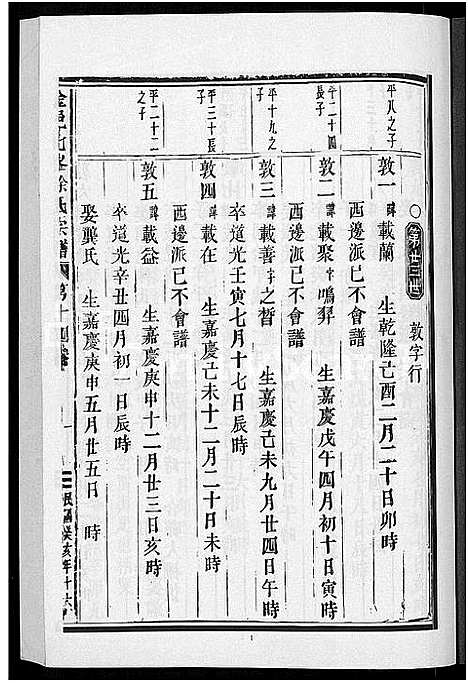 第廿三世 敦字行
平八之子
敦一 諱載蘭 生乾隆己酉二月二十日卯時
西邊派已不會譜
平二十四長子
敦二 諱載聚字鳴羿 生嘉慶戊午四月初十日寅時
西邊派已不會譜
平十九之子
敦三 諱載善字之晳 生嘉慶己未九月廿四日午時
卒道光壬寅七月十七日辰時
平三十長子
敦四 諱載在 生嘉慶己未十二月二十日未時
西邊派已不會譜
平二十二之子
敦五 諱載益 生嘉慶庚申十二月廿三日亥時
卒道光辛丑四月初一日辰時
娶龔氏 生嘉慶庚申五月廿五日 時
徐氏宗譜 第十四
癸亥年
1